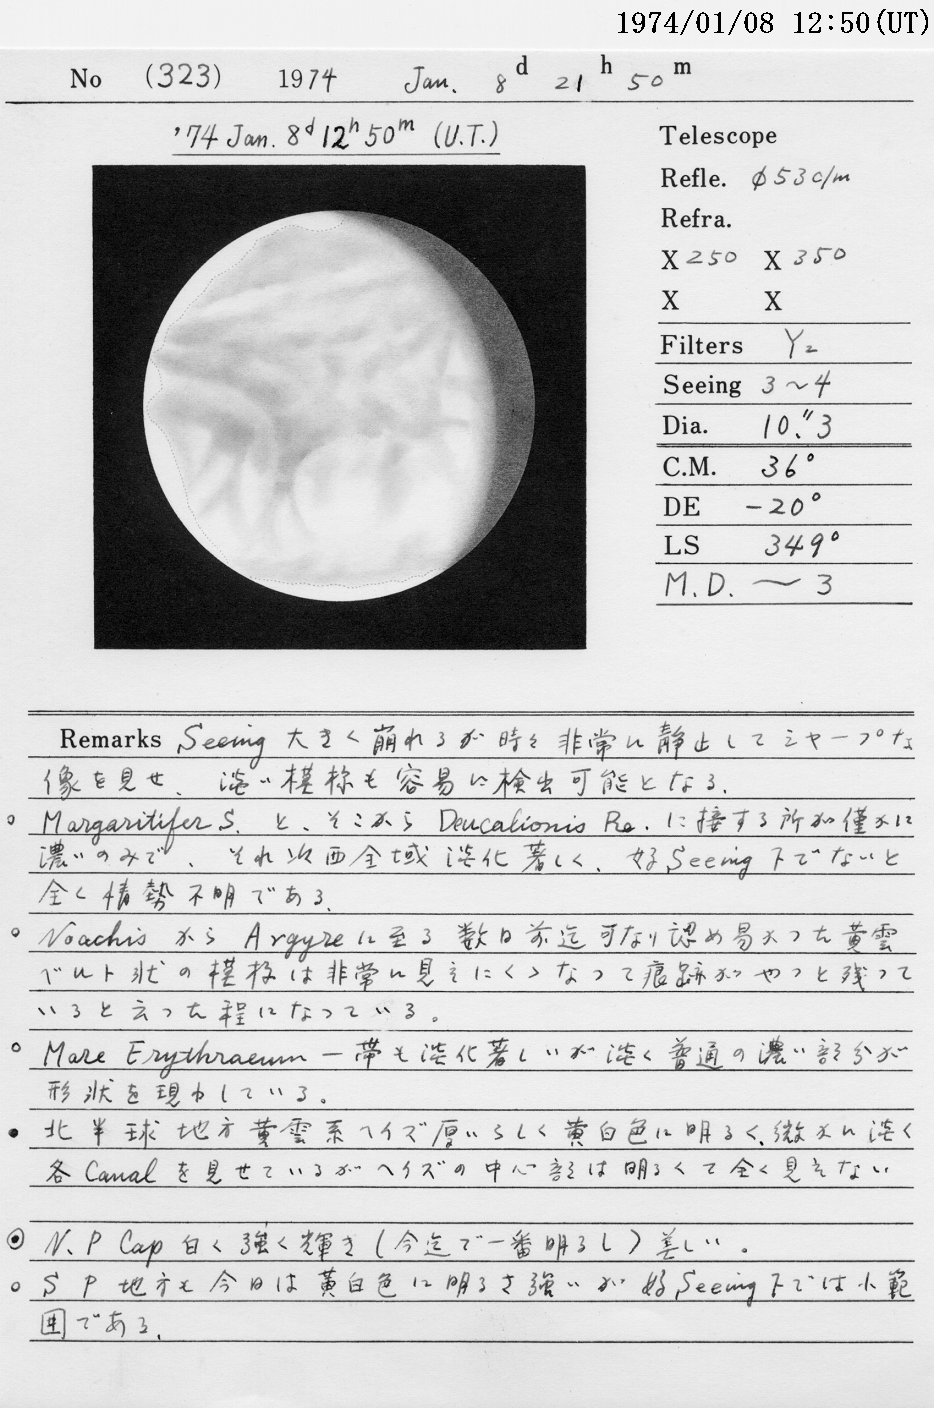 1974/01/08 12:50(UT)
No (323) 1974 Jan. 8d 21h 50m
'74 Jan. 8d 12h 50m (U.T.)
Telescope
Refle. φ53c/m
Refra.
X 250 X 350
X X
Filters Y2
Seeing 3~4
Dia. 10."3
C.M. 36°
DE -20°
LS 349°
M.D. ~ 3
Remarks Seeing 大きく崩れるが時々非常に静止してシャープな
像を見せ、淡い模様も容易に検出可能となる.
○ Margaritifer S. と、そこから Deucalionis Re. に接する所が僅かに
濃いのみで、それ以西全域淡化著しく、好Seeing下でないと
全く情勢不明である.
○ Noachis から Argyre に至る数日前迄可なり認め易かった黄雲
ベルト状の模様は非常に見えにくくなって痕跡がやっと残って
いると云った程になっている。
○ Mare Erythraeum 一帯も淡化著しいが淡く普通の濃い部分が
形状を現わしている。
● 北半球地方黄雲系ヘイズ厚いらしく黄白色に明るく、微かに淡く
各Canalを見せているがヘイズの中心部は明るくて全く見えない
◎ N.P Cap 白く強く輝き(今迄で一番明るし)美しい。
○ S P 地方も今日は黄白色に明るさ強いが好Seeing下では小範
囲である.